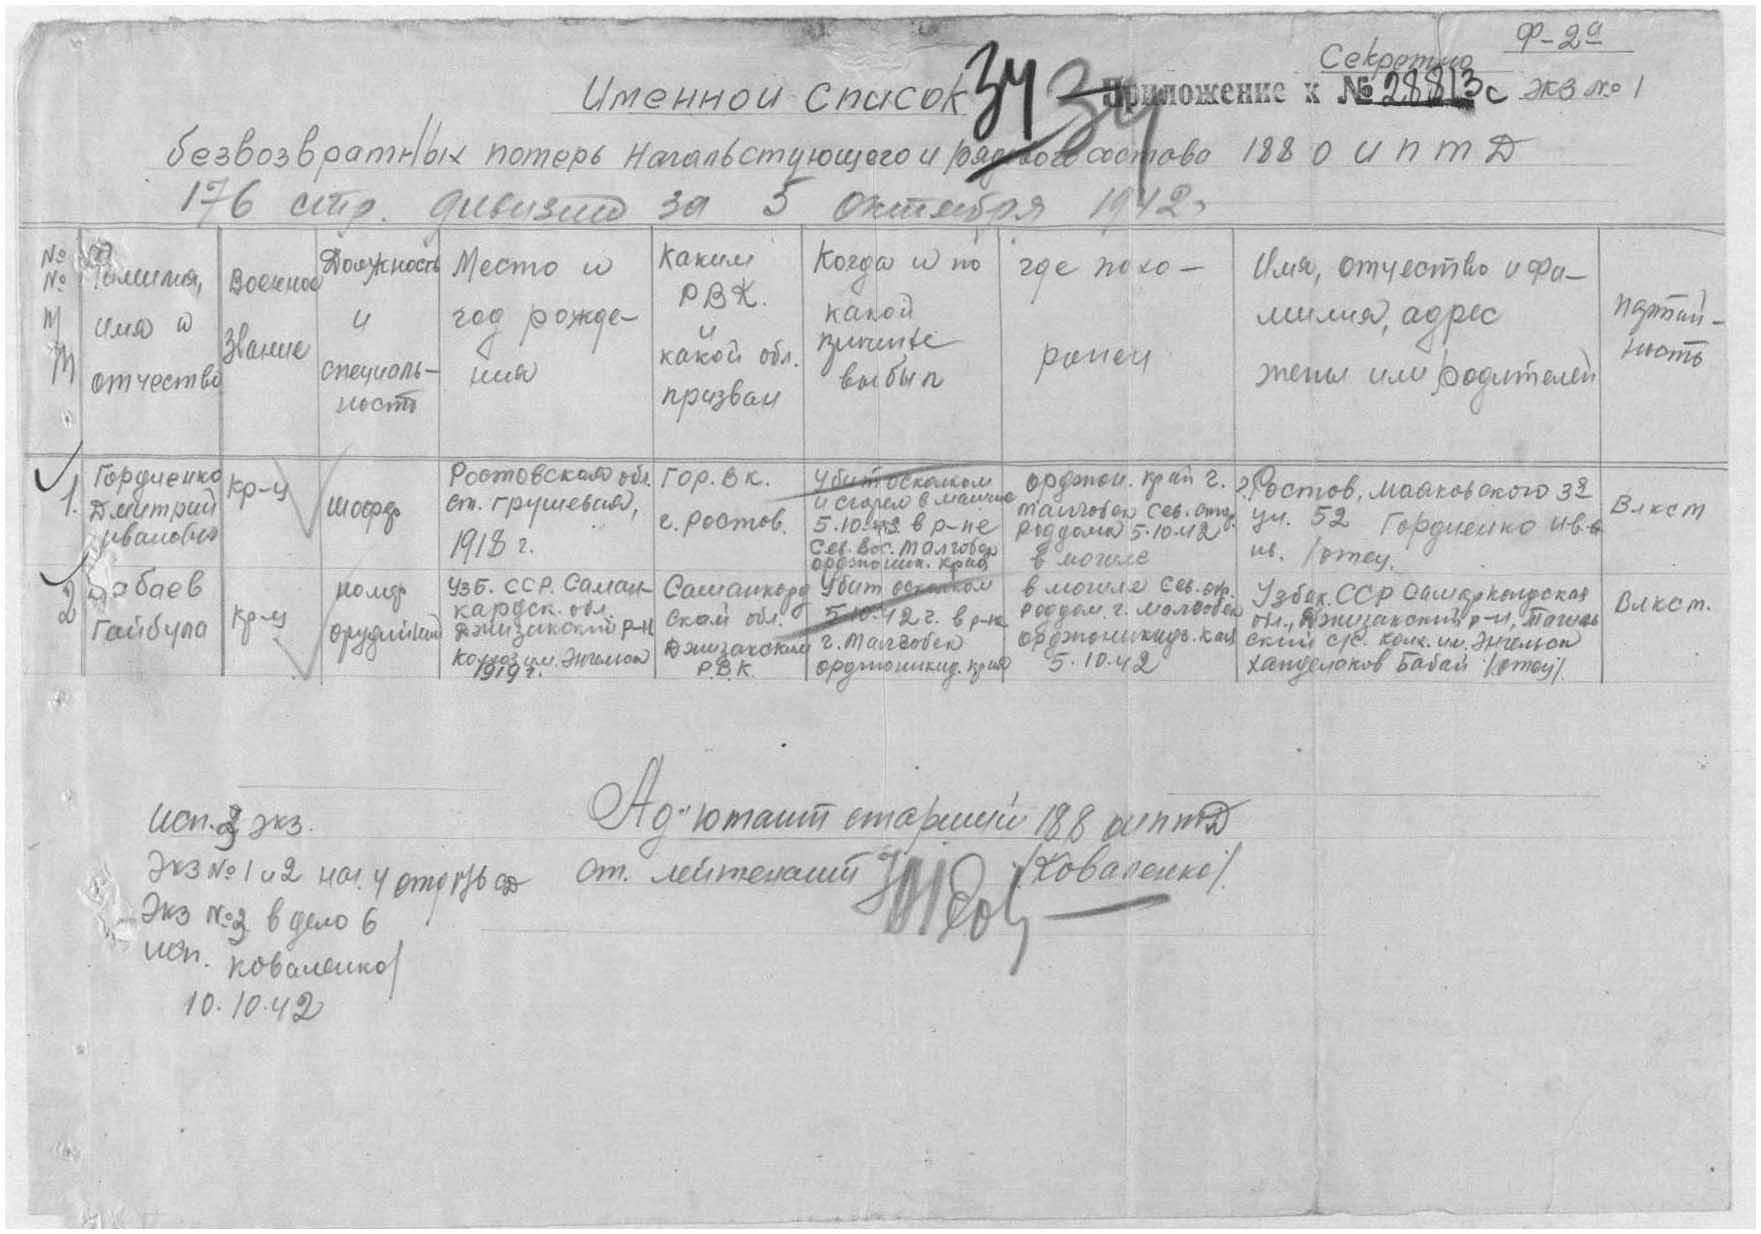 Ф-2а
Секретно
Именной список 34 34 Приложение к № 28813с экз № 1
безвозвратных потерь начальствующего и рядового состава 188 о и п т Д
176 стр. дивизии за 5 октября 1942 г
№ № п п
Фамилия, имя и отчество
Военное звание
Должность и специальность
Место и год рождения
Каким Р.В.К. и какой обл. призван
Когда и по какой причине выбыл
где похоронен
Имя, отчество и фамилия, адрес жены или родителей
партийность
1.
Гордиенко
Дмитрий
Иванович
Кр-ц
шофер
Ростовская обл.
ст. Грушевская,
1918 г.
Гор. В К.
г. Ростов.
Убит осколком
и сгорел в машине
5.10.42 в р-не
Сев. Вос. Малгобек
орджоник. край
орджон. край г.
Малгобек Сев. окр.
роддома 5.10.42
в могиле
г. Ростов, Маяковского 32
ул. 52 Гордиенко Ив-в
ив. /отец.
Влксм
2
Бабаев
Гайбула
Кр-ц
номер
орудийный
Узб. ССР. Самар-
кандск. обл.
Джизакский р-н
Колхоз им. Энгельса
1919 г.
Самарканд
ской обл.
Джизакским
Р.В.К.
Убит осколком
5.10.42 г. в р-не
г. Малгобек
орджоникид. края
в могиле Сев. окр.
роддом. г. Малгобек
орджоникидз. края
5.10.42
Узбек. ССР Самаркандская
обл., Джизакский р-н,
ский с/с. колх. им. Энгельса
Бабай /отец/.
Влксм.
Ад"ютант старший 188 оиптД
ст. лейтенант /Коваленко/.
исп. 3 экз.
Экз № 1 и 2 нач. 4 отд 176 сд
Экз № 3 в дело 6
исп. Коваленко/
10.10.42